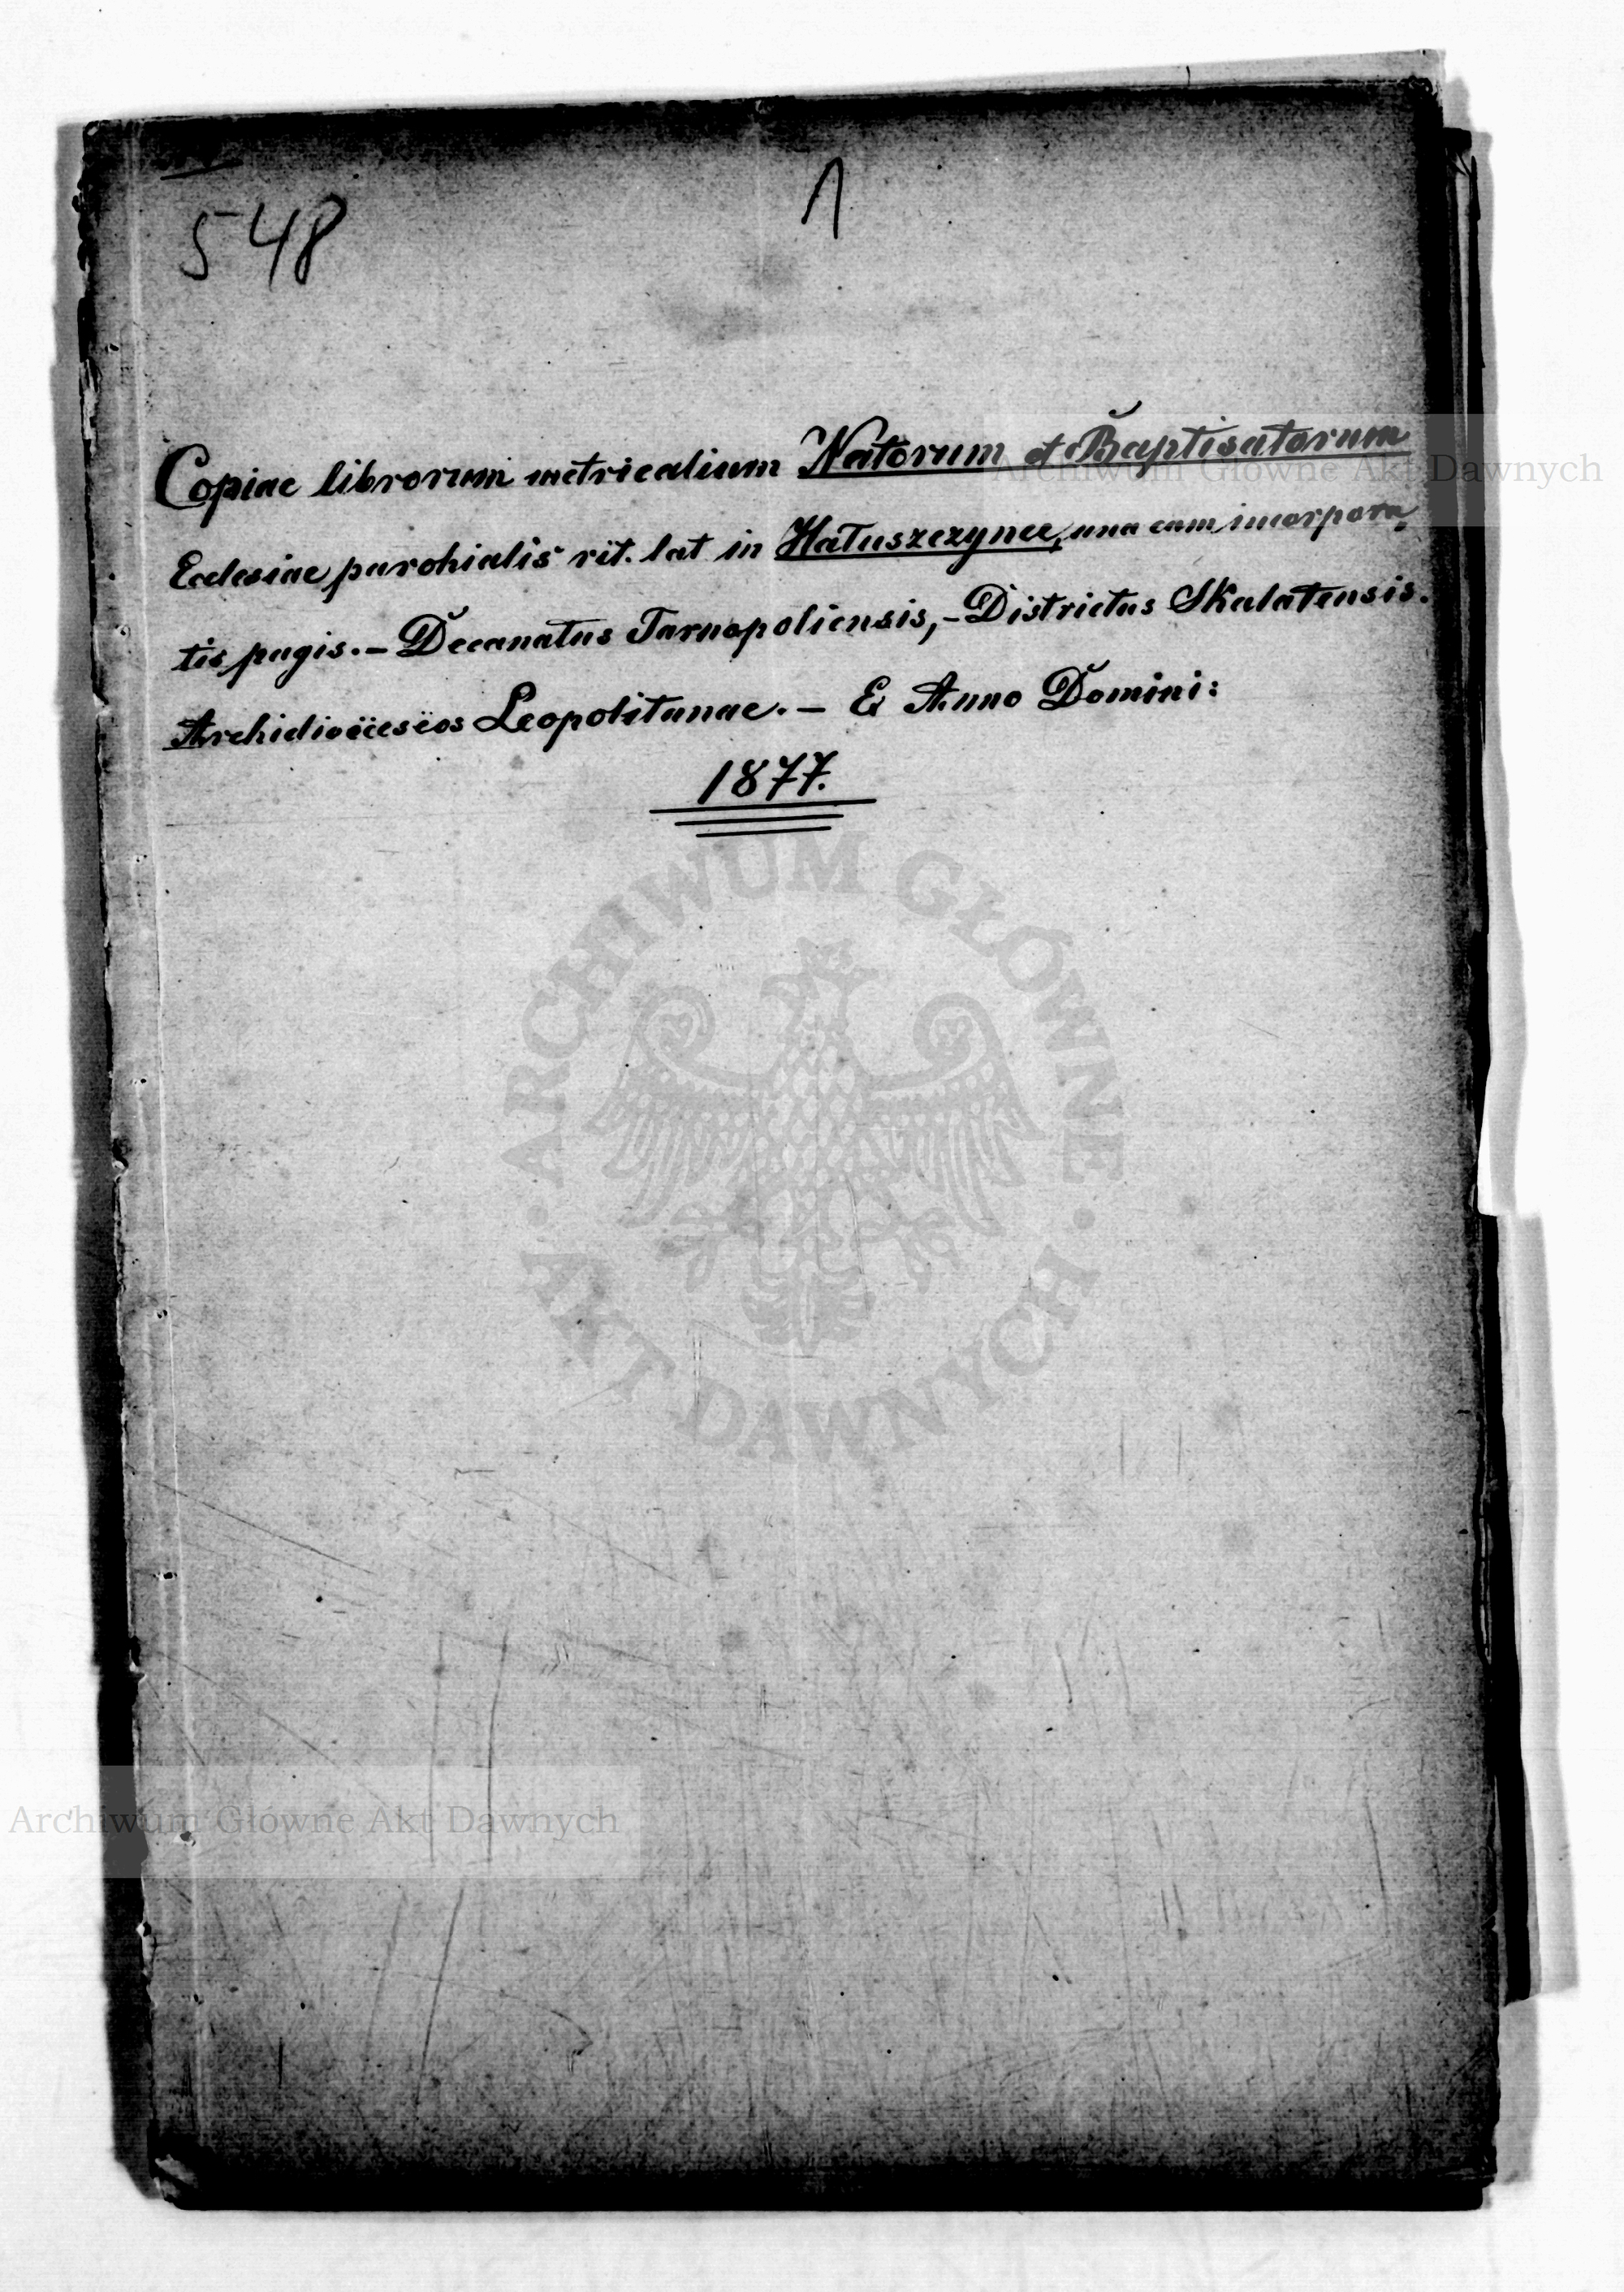 548
1
Copiae librorum metricalium Natorum et Baptisatorum
Ecclesiae parohialis rit. lat in Hałuszczynce, una cum incorpora-
tis pagis. – Decanatus Tarnopoliensis, – Districtus Skalatensis.
Archidioëcesëos Leopolitanae. – E Anno Domini:
1877.
Archiwum Główne Akt Dawnych
ARCHIWUM GŁÓWNE
AKT DAWNYCH
Archiwum Główne Akt Dawnych